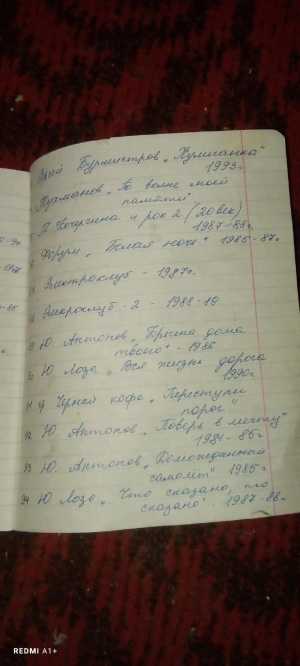 Бурмистров „Хулиганка"
1993г
Тухманов „По волне моей
памяти"
(20 век)
1987-88г
Форум „Белая ночь" 1986-87г
Электроклуб - 1987г.
Электроклуб - 2 - 1988-19
Ю. Антонов „Крыша дома
твоего" - 1986
Ю Лоза „Вся жизнь дорога
1990г
Чёрный кофе „Переступи
порог"
Ю. Антонов „Поверь в мечту"
1984-85г
23 Ю. Антонов „Долгожданный
самолёт" 1985г
24 Ю Лоза „Что сказано, то
сказано". 1987-88г
REDMI A1+